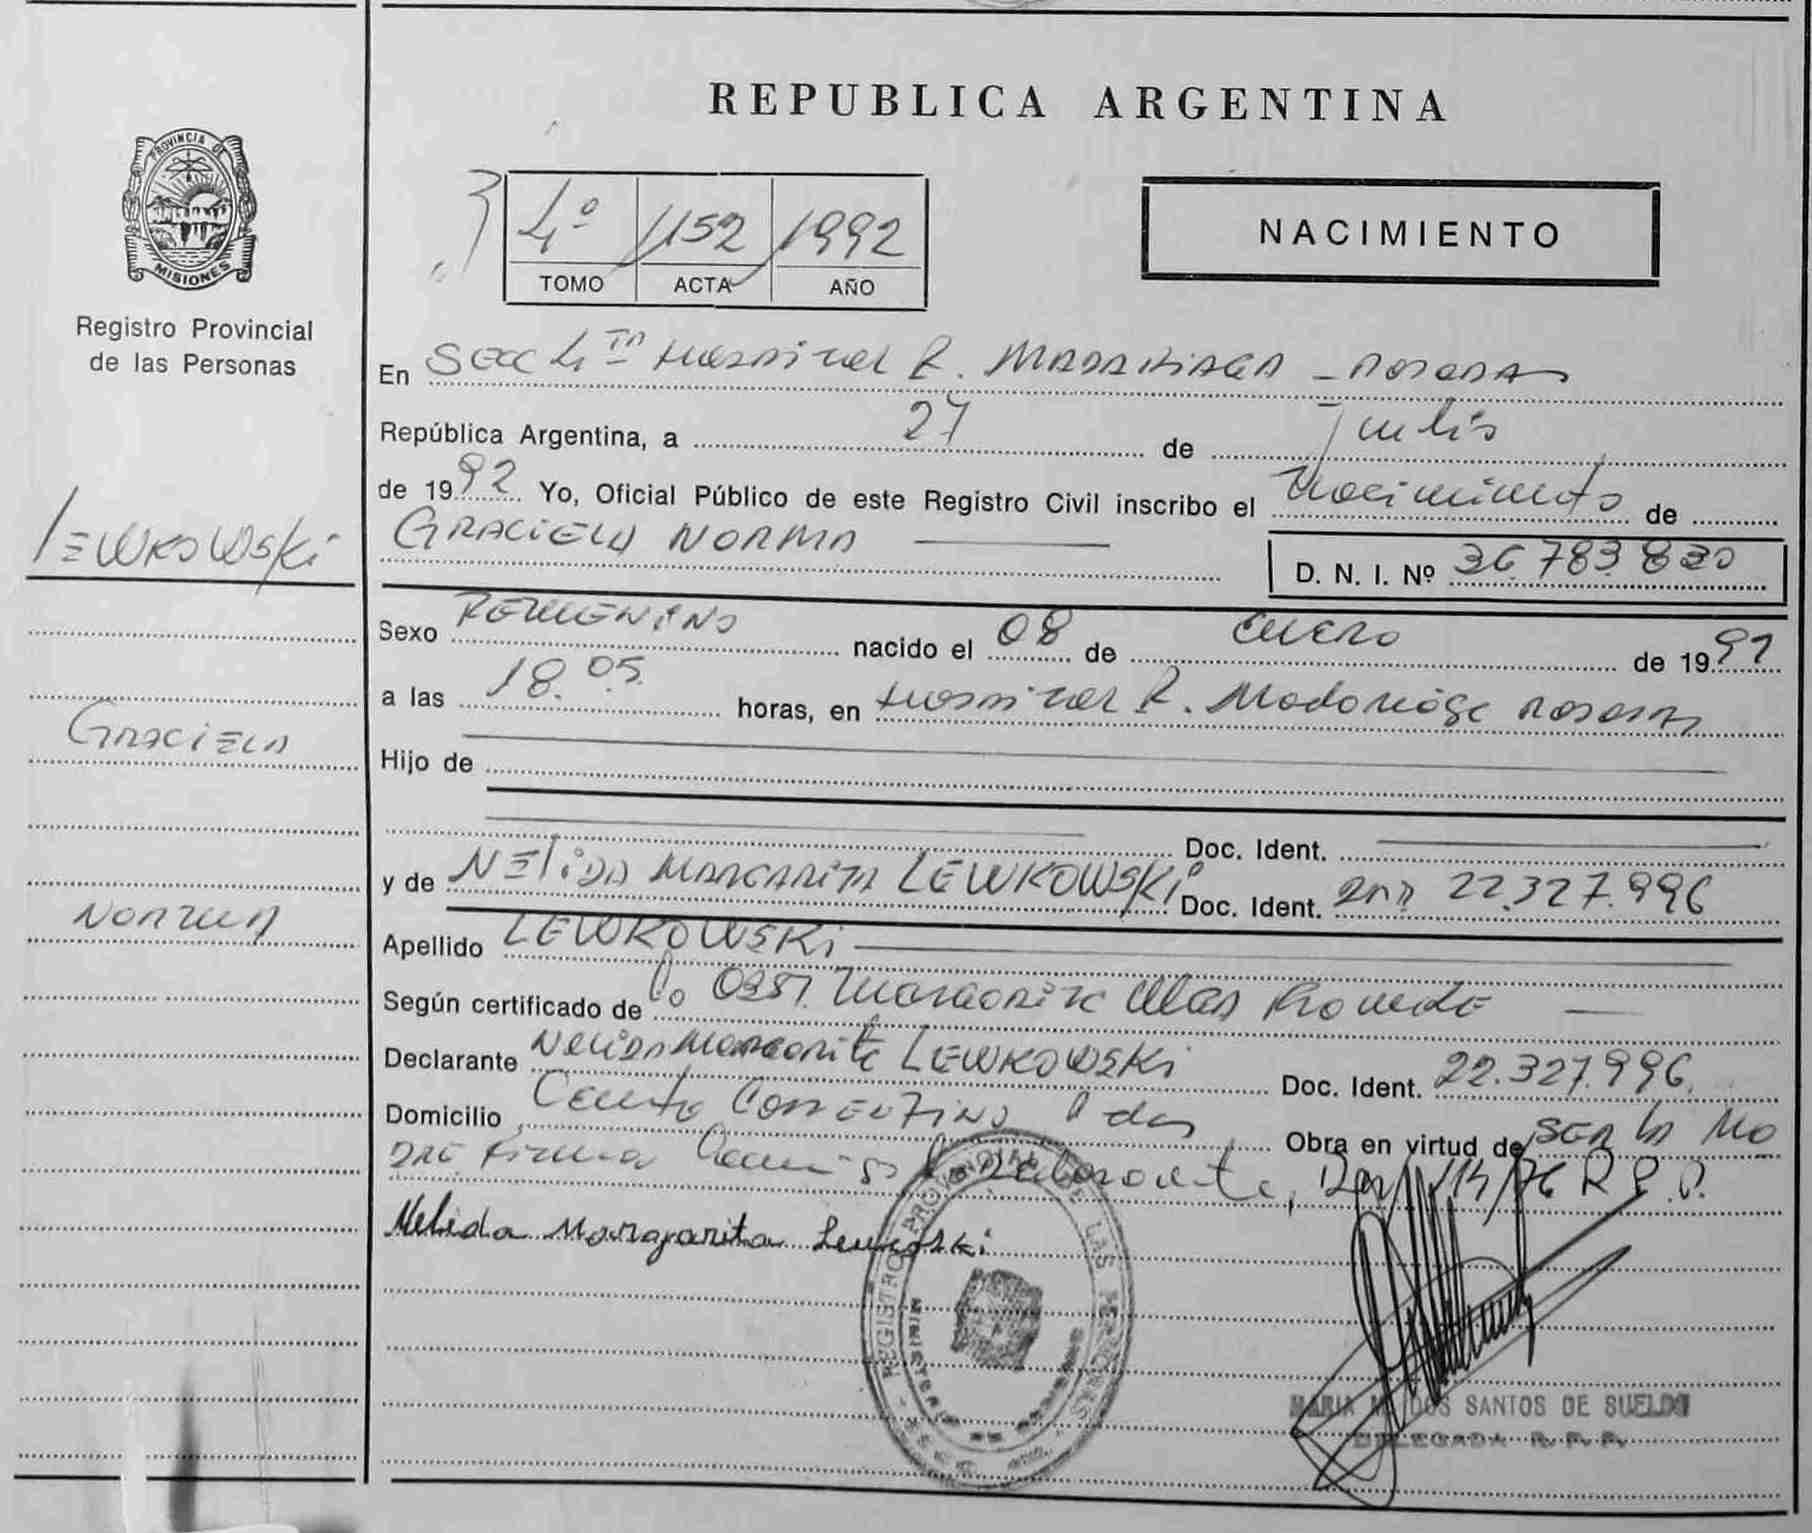 REPUBLICA ARGENTINA
PROVINCIA DE
MISIONES
Registro Provincial
de las Personas
LEWKOWSKi
GRACIELA
NORMA
4º 1152 1992
TOMO ACTA AÑO
NACIMIENTO
En SECC 4ta Hospital R. MADARIAGA - POSADAS
República Argentina, a 27 de Julio
de 1992 Yo, Oficial Público de este Registro Civil inscribo el Nacimiento de
GRACIELA NORMA
D. N. I. Nº 36.783.830
Sexo FEMENINO nacido el 08 de ENERO de 1992
a las 18.05. horas, en Hospital R. Madariaga POSADAS
Hijo de
Doc. Ident.
y de NELiDA MARGARITA LEWKOWSKi Doc. Ident. DNI 22.327.996
Apellido LEWKOWSKi
Según certificado de Obst. Margarita
Declarante NELIDA Margarita LEWKOWSKi Doc. Ident. 22.327.996.
Domicilio CORRENTINO Obra en virtud de SER LA MA
DRE Firma Declarante, R.P.P.
Nelida Margarita Lewkoski
REGISTRO PROVINCIAL DE LAS PERSONAS
MINISTERIO DE
MARIA M. DOS SANTOS DE SUELDO
DELEGADA R. P. P.